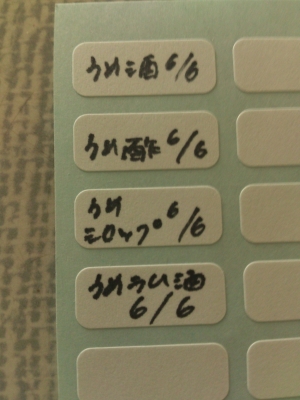 うめ酒 6/6
うめ酢 6/6
うめ
シロップ 6/6
うめ
6/6